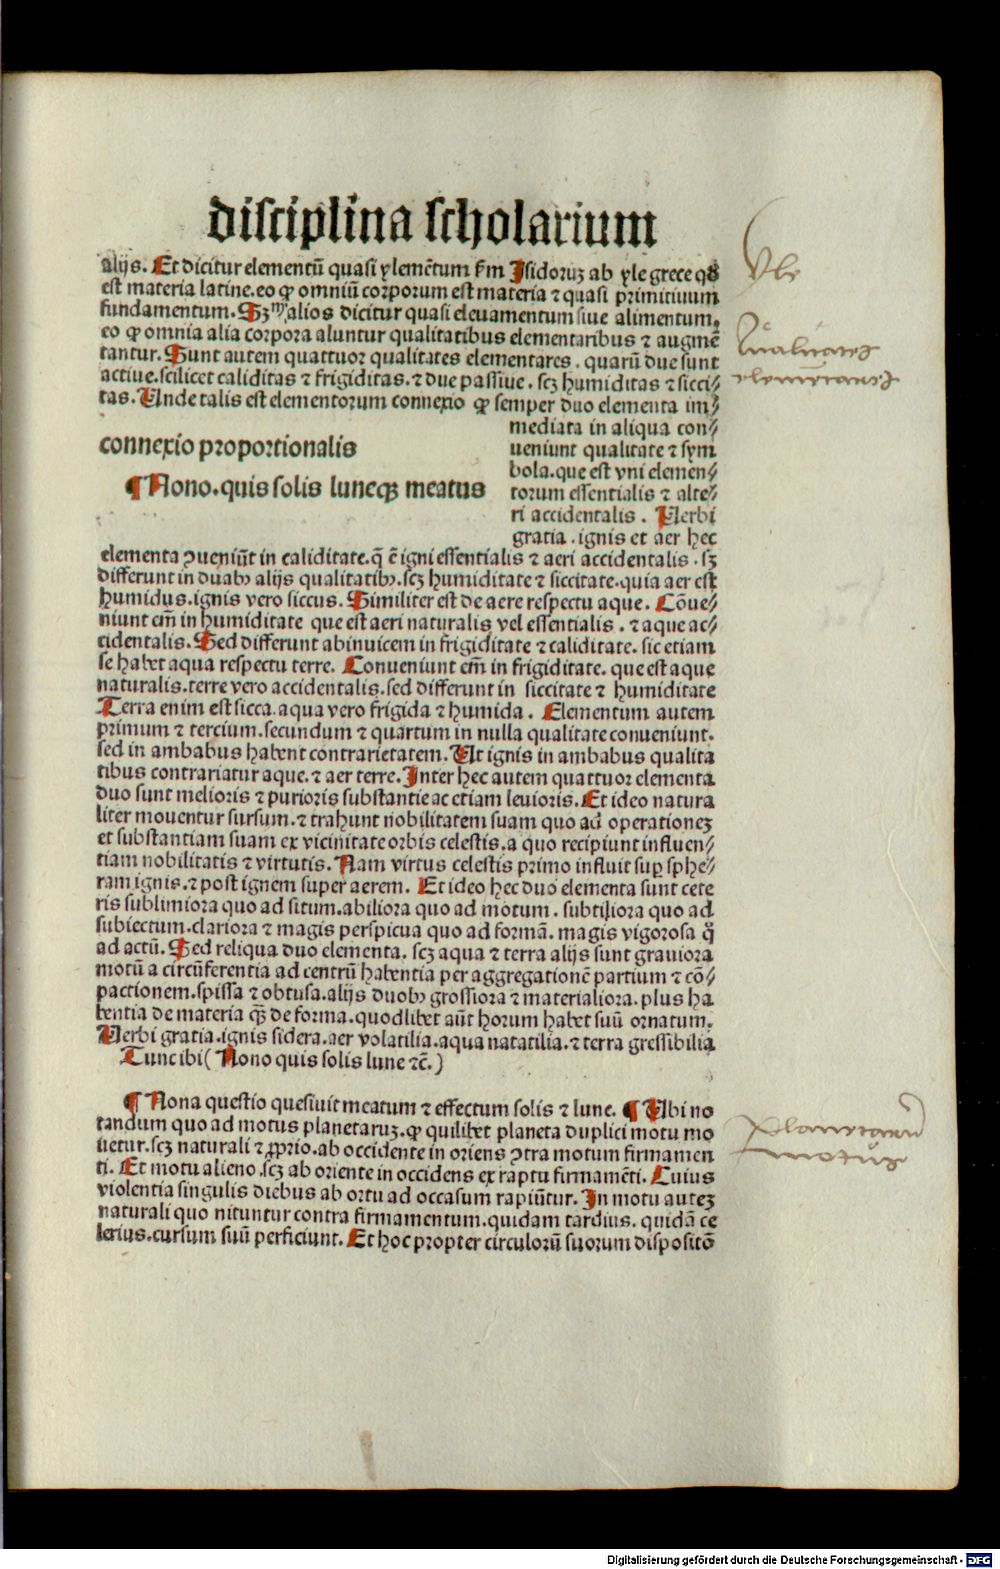 disciplina scholarium
alijs. Et dicitur elementū quasi ylemētum ẜm Isidoruꝫ ab yle grece qḋ
est materia latine. eo ꝙ omniū corporum est materia ⁊ quasi primitiuum
fundamentum. Sꝫ alios dicitur quasi eleuamentum siue alimentum,
eo ꝙ omnia alia corpora aluntur qualitatibus elementaribus ⁊ augmē
tantur. Sunt autem quattuor qualitates elementares. quarū due sunt
actiue. scilicet caliditas ⁊ frigiditas. ⁊ due passiue. scꝫ humiditas ⁊ sicci⸗
tas. Unde talis est elementorum connexio ꝙ semper duo elementa im⸗
mediata in aliqua con⸗
ueniunt qualitate ⁊ sym
bola. que est vni elemen⸗
torum essentialis ⁊ alte⸗
ri accidentalis. Uerbi
gratia. ignis et aer hec
connexio proportionalis
¶ Nono. quis solis luneqꝫ meatus
elementa ꝯueniūt in caliditate. q̄ ē igni essentialis ⁊ aeri accidentalis. sꝫ
differunt in duabꝰ alijs qualitatibꝰ. scꝫ humiditate ⁊ siccitate. quia aer est
humidus. ignis vero siccus. Similiter est de aere respectu aque. Cōue⸗
niunt em̄ in humiditate que est aeri naturalis vel essentialis. ⁊ aque ac⸗
cidentalis. Sed differunt abinuicem in frigiditate ⁊ caliditate. sic etiam
se habet aqua respectu terre. Conueniunt em̄ in frigiditate. que est aque
naturalis. terre vero accidentalis. sed differunt in siccitate ⁊ humiditate
Terra enim est sicca. aqua vero frigida ⁊ humida. Elementum autem
primum ⁊ tercium. secundum ⁊ quartum in nulla qualitate conueniunt.
sed in ambabus habent contrarietatem. Ut ignis in ambabus qualita
tibus contrariatur aque. ⁊ aer terre. Inter hec autem quattuor elementa
duo sunt melioris ⁊ purioris substantie ac etiam leuioris. Et ideo natura
liter mouentur sursum. ⁊ trahunt nobilitatem suam quo ad operationeꝫ
et substantiam suam ex vicinitate orbis celestis. a quo recipiunt influen⸗
tiam nobilitatis ⁊ virtutis. Nam virtus celestis primo influit suꝑ sphe⸗
ram ignis. ⁊ post ignem super aerem. Et ideo hec duo elementa sunt cete
ris sublimiora quo ad situm. abiliora quo ad motum. subtiliora quo ad
subiectum. clariora ⁊ magis perspicua quo ad formā. magis vigorosa q̊
ad actū. Sed reliqua duo elementa. scꝫ aqua ⁊ terra alijs sunt grauiora
motū a circūferentia ad centrū habentia per aggregationē partium ⁊ cō⸗
pactionem. spissa ⁊ obtusa. alijs duobꝰ grossiora ⁊ materialiora. plus ha
bentia de materia q̄ꝫ de forma. quodlibet aūt horum habet suū ornatum.
Uerbi gratia. ignis sidera. aer volatilia. aqua natatilia. ⁊ terra gressibilia
Tunc ibi ( Nono quis solis lune ⁊c̄. )
¶ Nona questio quesiuit meatum ⁊ effectum solis ⁊ lune. ¶ Ubi no
tandum quo ad motus planetaruꝫ. ꝙ quilibet planeta duplici motu mo
uetur. scꝫ naturali ⁊ ꝓprio. ab occidente in oriens ꝯtra motum firmamen
ti. Et motu alieno. scꝫ ab oriente in occidens ex raptu firmamēti. Cuius
violentia singulis diebus ab ortu ad occasum rapiūtur. In motu auteꝫ
naturali quo nituntur contra firmamentum. quidam tardius. quidā ce
lerius. cursum suū perficiunt. Et hoc propter circulorū suorum dispositō
Yle
Qualitates
elementares
Planetarū
motus
Digitalisierung gefördert durch die Deutsche Forschungsgemeinschaft - DFG